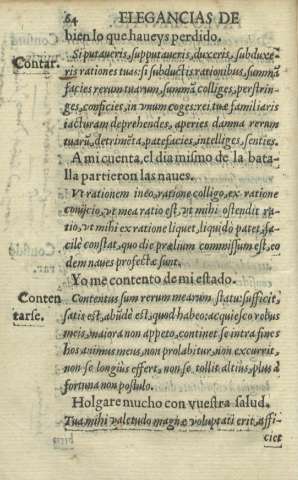 64 ELEGANCIAS DE
bien lo que haueys perdido.
Contar. Si putaueris, supputaueris, duxeris, subduxe-
ris rationes tuas: si subductis rationibus, summã
facies rerum tuarum, summã colliges, perstrin-
ges, conficies, in vnum coges: rei tuæ familiaris
iacturam deprehendes, aperies damna rerum
tuarũ, detrimẽta, patefacies, intelliges, senties.
A mi cuenta, el dia mismo de la bata-
lla partieron las naues.
Vt rationem ineo, ratione colligo, ex ratione
coniicio, vt mea ratio est, vt mihi ostendit ra-
tio, vt mihi ex ratione liquet, liquidò patet, fa-
cilè constat, quo die prælium commissum est, eo
dem naues profectæ sunt.
Yo me contento de mi estado.
Conten
tarse. Contentus sum rerum mearum statu: sufficit,
satis est, abũdè est, quod habeo: acquiesco rebus
meis, maiora non appeto, continet se intra fines
hos animus meus, non prolabitur, non excurrit,
non se longiùs effert, non se tollit altiùs, plus à
fortuna non postulo.
Holgare mucho con vuestra salud.
Tua mihi valetudo magnæ voluptati erit, affi-
ciet